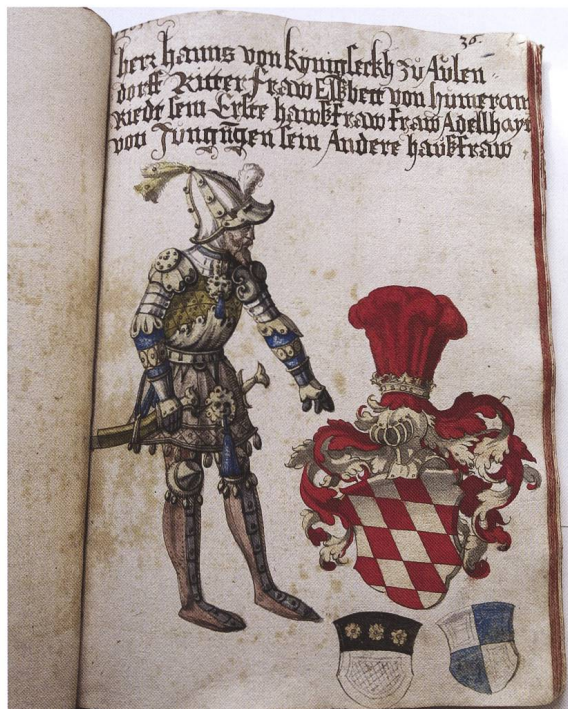 36.
herr hanns von kynigseckh zu Aulen-
dorff Ritter fraw Elßbett von humeram
Riedt sein Erste haußfraw fraw Adellhayt
von Jungingen sein Andere haußfraw